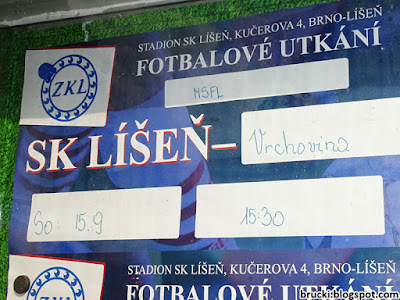 STADION SK LÍŠEŇ, KUČEROVA 4, BRNO-LÍŠEŇ
FOTBALOVÉ UTKÁNÍ
ZKL
MSFL
SK LÍŠEŇ–
Vrchovina
So 15.9
15:30
STADION SK LÍŠEŇ, KUČEROVA 4, BRNO-LÍŠEŇ
ZKL
FOTBALOVÉ UTKÁNÍ
brucki.blogspot.com